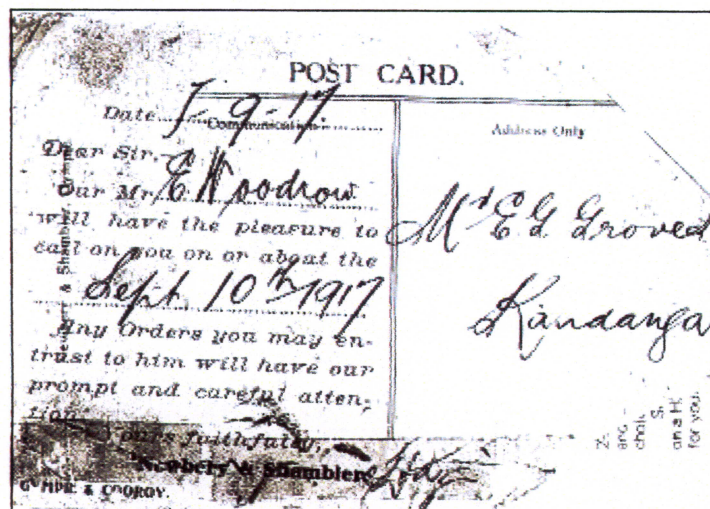 POST CARD.
Date 7-9-17.
Communication.
Address Only
Dear Sir,
Our Mr. E Woodrow
will have the pleasure to
call on you on or about the
Sept. 10th 1917
Any Orders you may en-
trust to him will have our
prompt and careful atten-
tion.
Yours faithfully,
Newbery & Shambler
GYMPIE & COOROY.
Newbery & Shambler, Gympie
Mr E G Groves
Kandanga
for you.